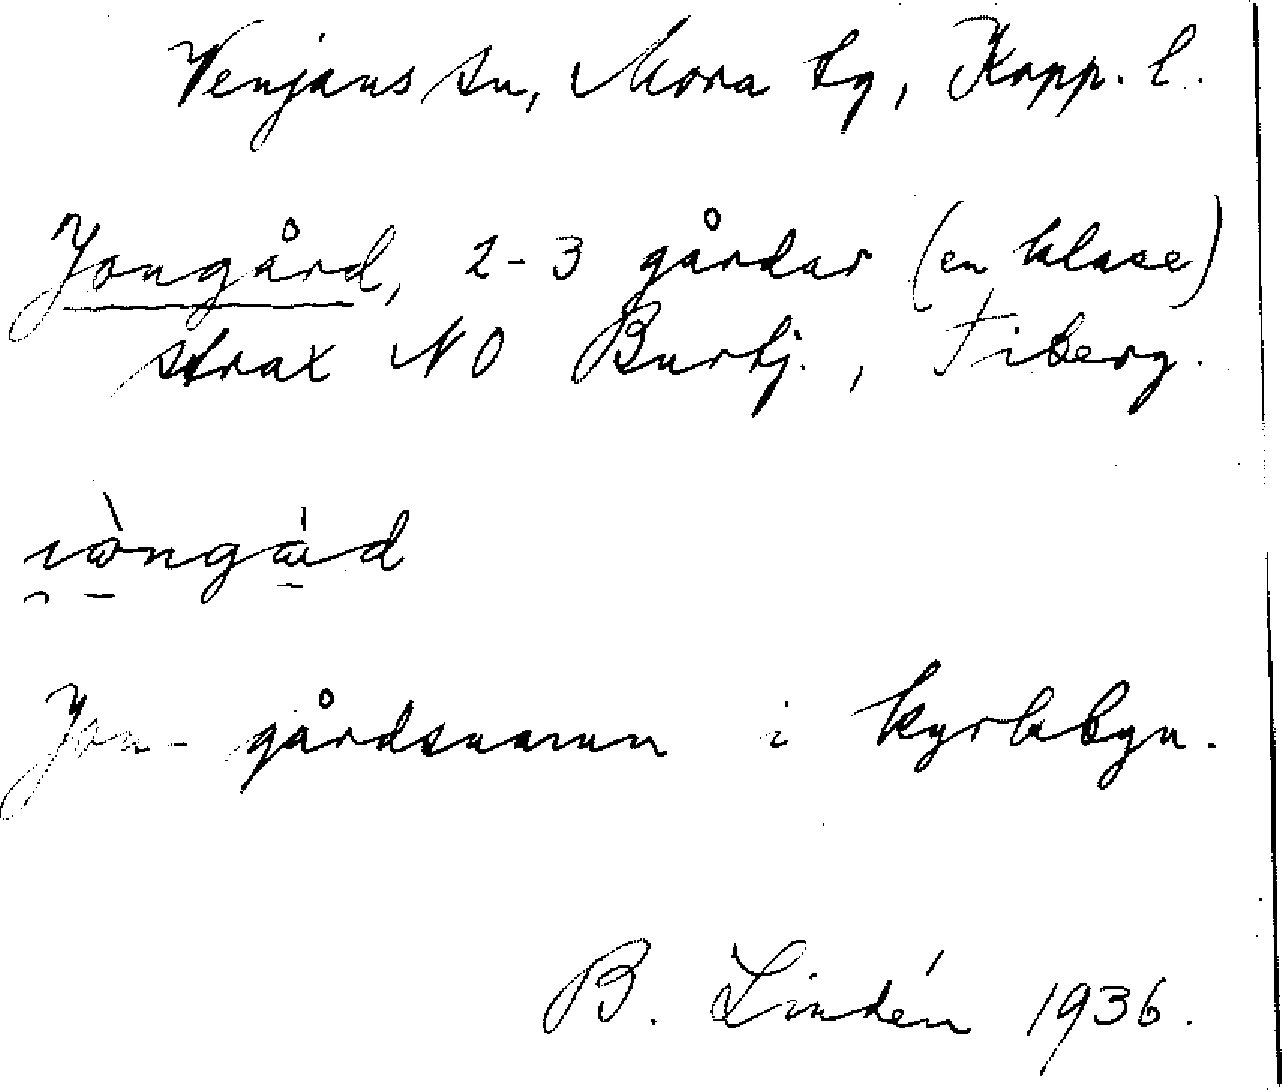 Venjans sn, Mora tg, Kopp. l.
Jongård, 2-3 gårdar (en klase)
strax NO Burtj., Fiberg.
Jon- gårdsnamn i kyrkbyn.
B. Lindén 1936.